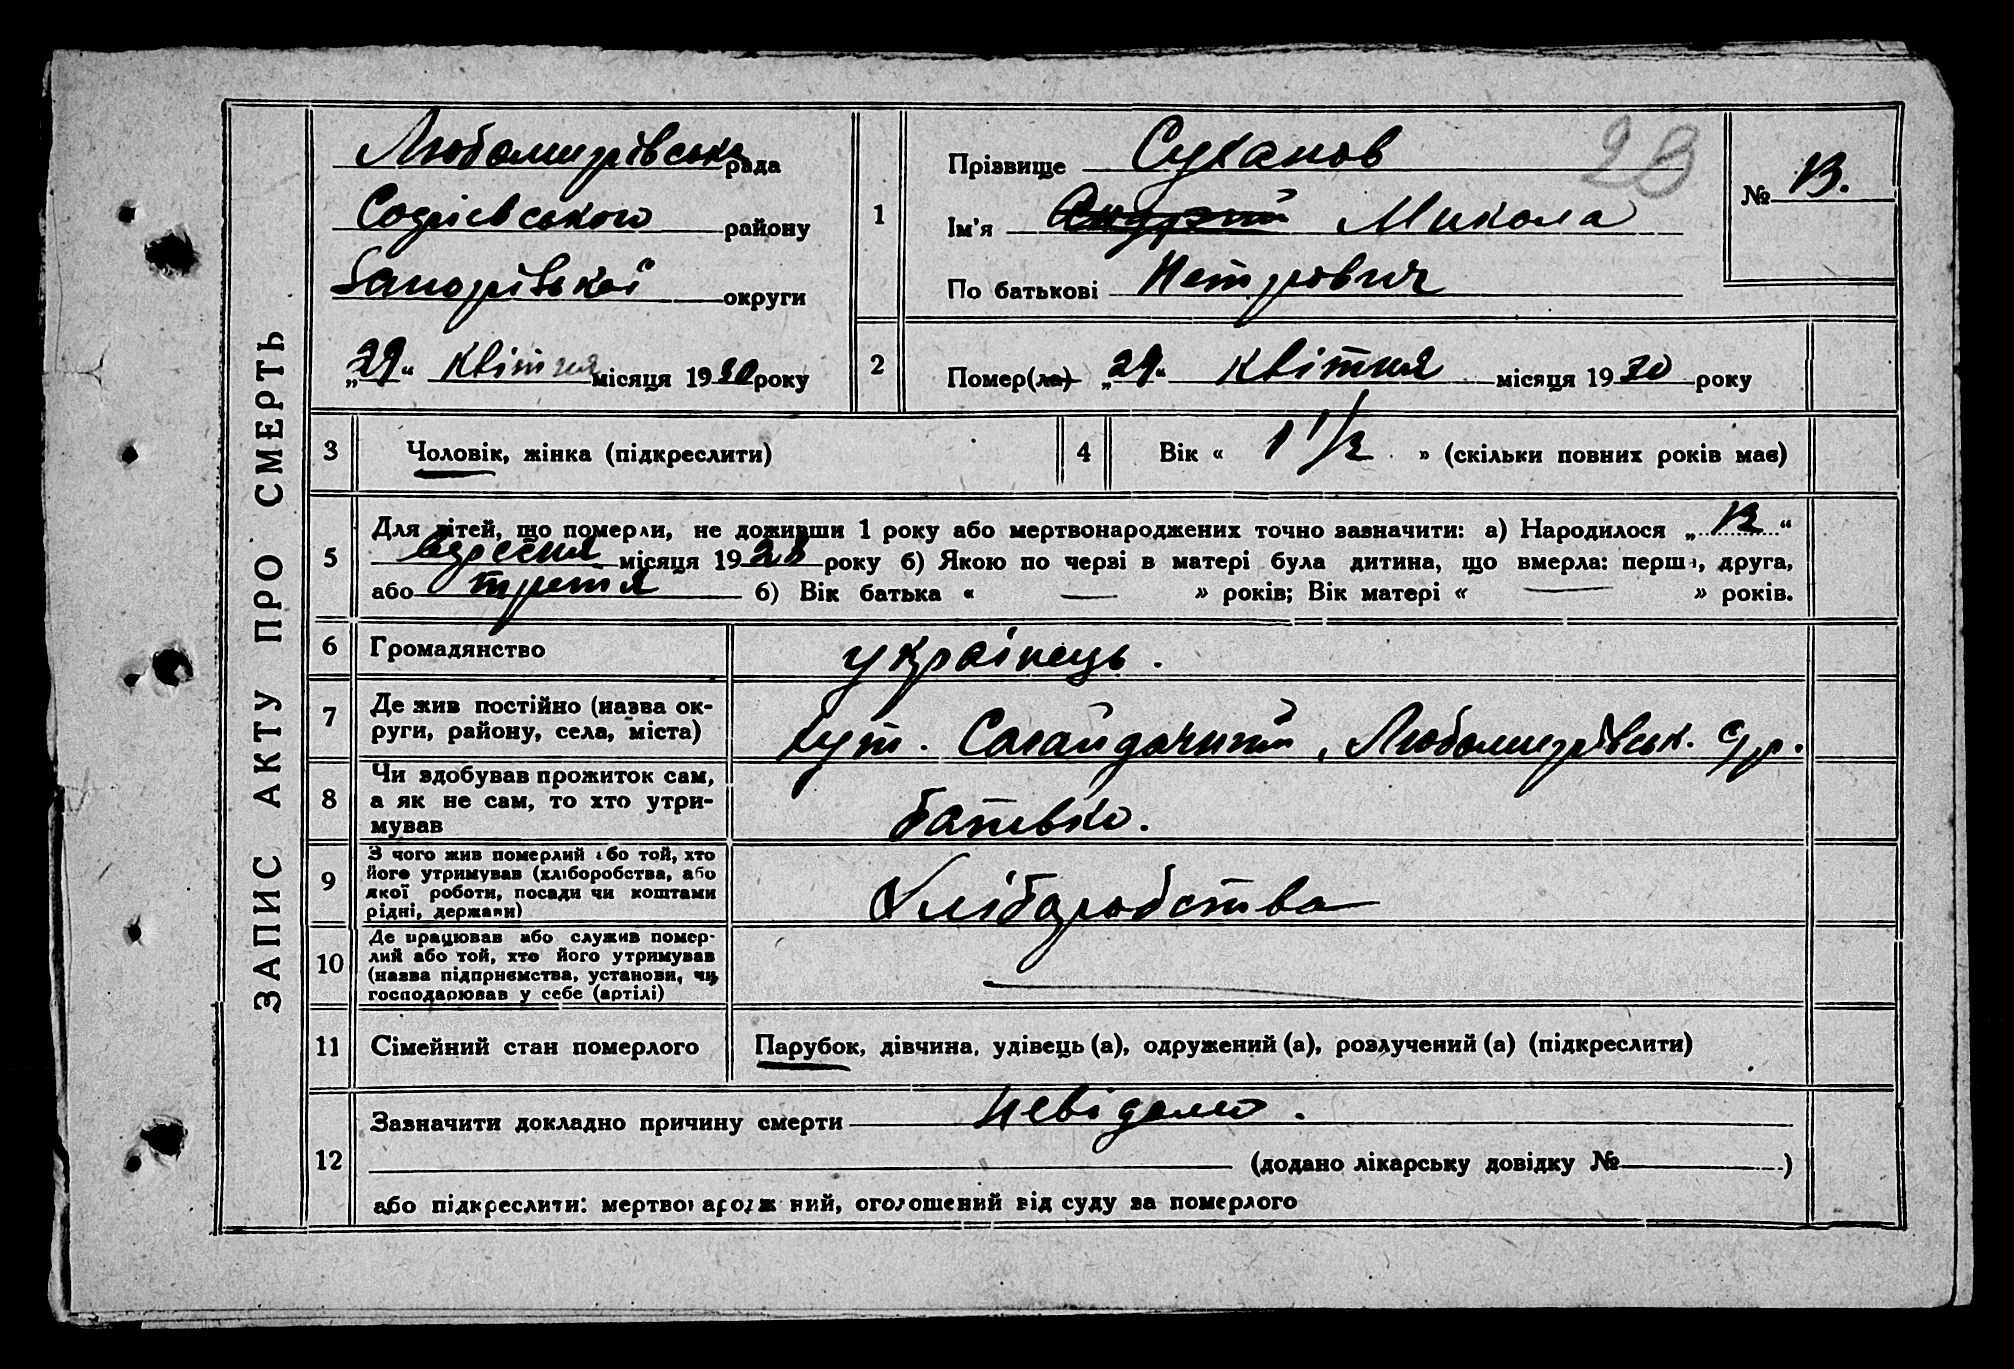 ЗАПИС АКТУ ПРО СМЕРТЬ
Любомирівська рада
Софіевського району
Запорізької округи
„29“ квітня місяця 1930 року
1
Прізвище Суханов
Ім'я Андрэй Микола
По батькові Петрович
23
№ 13.
2
Помер(ла) „29“ квітня місяця 1930 року
3 Чоловік, жінка (підкреслити)
4 Вік « 1 1/2 » (скільки повних років має)
5 Для дітей, що померли, не доживши 1 року або мертвонароджених точно зазначити: а) Народилося „12“
вересня місяця 1928 року б) Якою по черві в матері була дитина, що вмерла: перша, друга,
або третя б) Вік батька « — » років; Вік матері « — » років.
6 Громадянство українець.
7 Де жив постійно (назва ок-
руги, району, села, міста) хут. Сагайдачний, Любомирівськ. с/р.
8 Чи здобував прожиток сам,
а як не сам, то хто утри-
мував батько.
9 З чого жив померлий або той, хто
його утримував (хліборобства, або
якої роботи, посади чи коштами
рідні, держави) Хліборобства
10 Де працював або служив помер-
лий або той, хто його утримував
(назва підприємства, установи, чи
господарював у себе (артілі) —
11 Сімейний стан померлого Парубок, дівчина, удівець (а), одружений (а), розлучений (а) (підкреслити)
12 Зазначити докладно причину смерти невідомо.
(додано лікарську довідку № )
або підкреслити: мертвонароджений, оголошений від суду за померлого